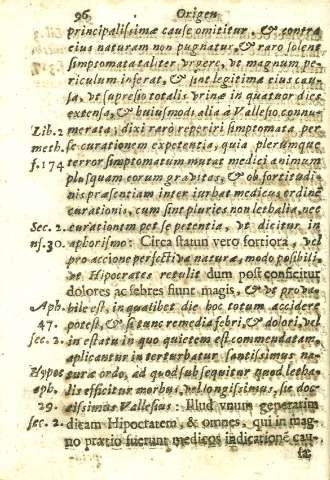 96 Origen
principalissimæ cause omititur, & contra
eius naturam non pugnatur, & raro solent
simptomata taliter vrgere, vt magnum pe-
riculum inferat, & sint legitima eius cau-
sa, vt supresio totalis vrinæ in quatuor dies
extensa, & huiusmodi alia à Vallesio connu-
Lib. 2 merata; dixi raro reperiri simptomata per
meth. se curationem expetentia, quia plerumque
f. 174 terror simptomatum mutat medici animum
plusquam eorum grauitas, & ob fortitudi-
nis præsentiam inter iurbat medicus ordinẽ
curationis, cum sint pluries non lethalia, nec
Sec. 2. curationem per se petentia, vt dicitur in
ns. 30. aphorismo: Circa statun vero fortiora, vel
pro accione perfectiva naturæ, modo posibili,
vt Hipocrates retulit dum post conficitur
dolores ac febres fiunt magis, & vt proua-
Aph. bile est, in qualibet die hoc totum accidere
47. potest, & si tunc remedia febri, & dolori, vel
sec. 2. in estatu in quo quietem est commendatam,
aplicantur in terturbatur santissimus na-
Hypoc turæ ordo, ad quod subsequitur quod letha-
aph. lis efficitur morbus, vel longissimus, sic doc-
29. tissimus Vallesius: Illud vnum generatim
sec. 2. dicam Hipocratem, & omnes, qui in mag-
no prætio fuerunt medicos indicationẽ cau-
sæ